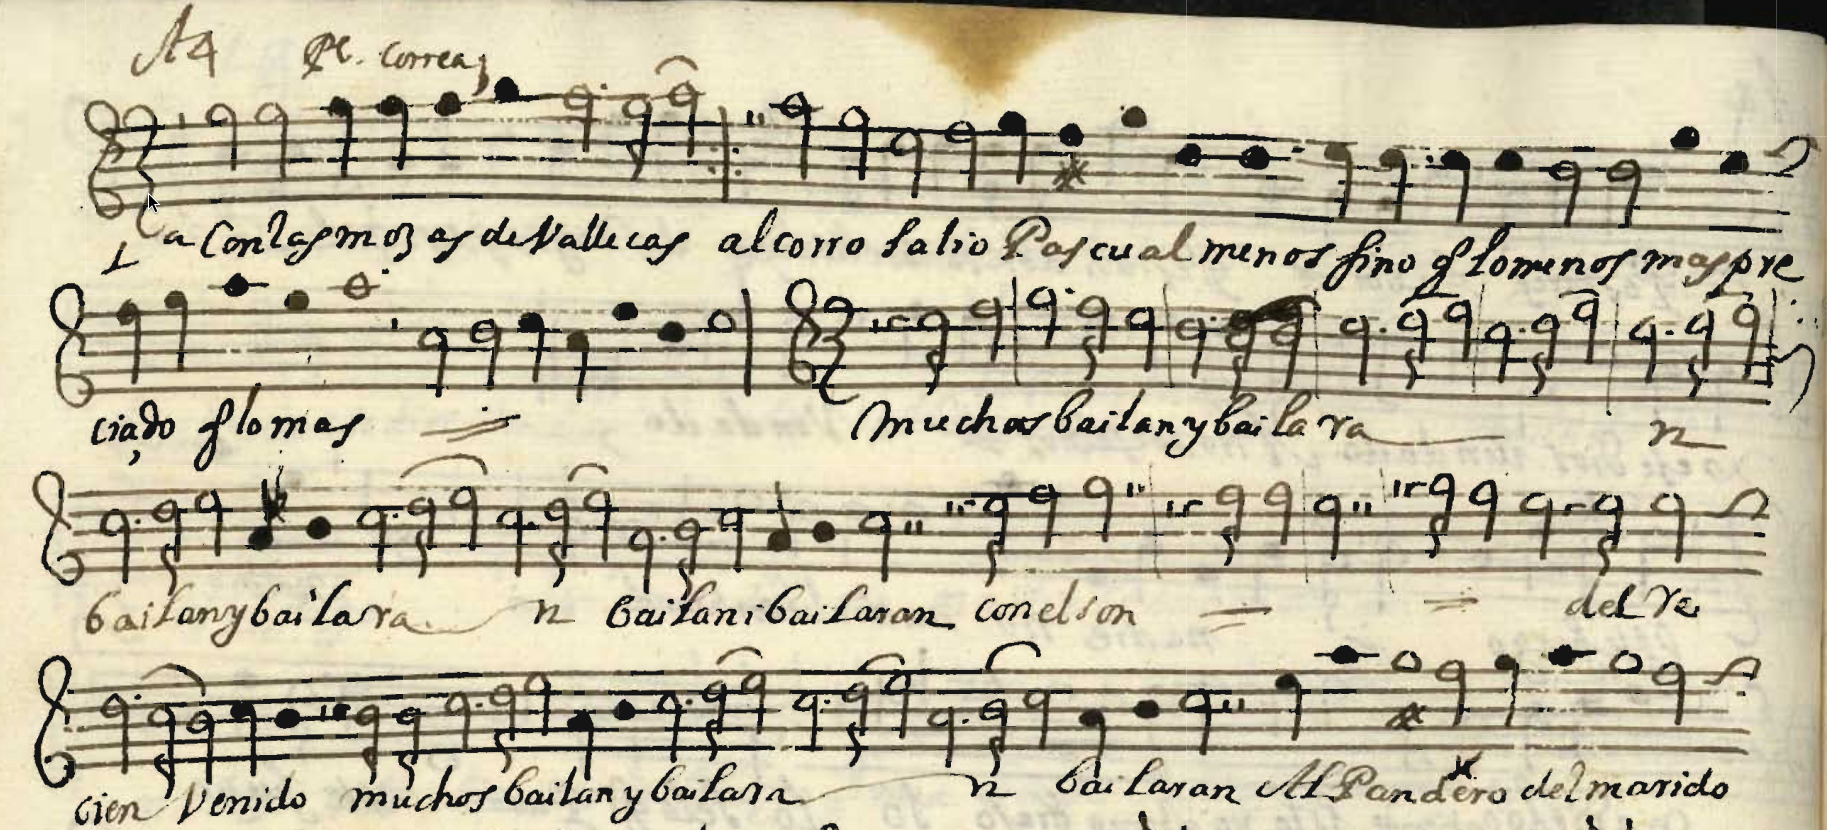 A4 Pe. Correa
Con las mozas de Vallecas al corro salio Pascual menos sino q lo menos mas pre
ciado q lo mas
Muchos bailan y bailara n
bailan y bailara n bailan i bailaran con el son del re
cien Venido muchos bailan y bailara n bailaran Al Pandero del marido